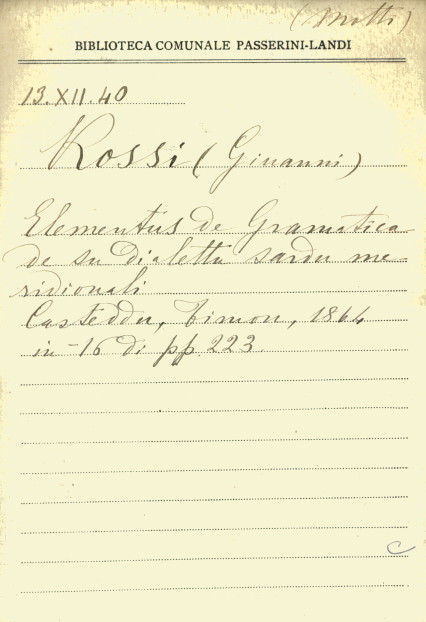 (Motti)
BIBLIOTECA COMUNALE PASSERINI-LANDI
13.XII.40
Rossi (Giuanni)
Elementus de Gramatica
de su dialettu sardu me-
ridionali
Casteddu, Timon, 1864
in-16 di pp 223.
C